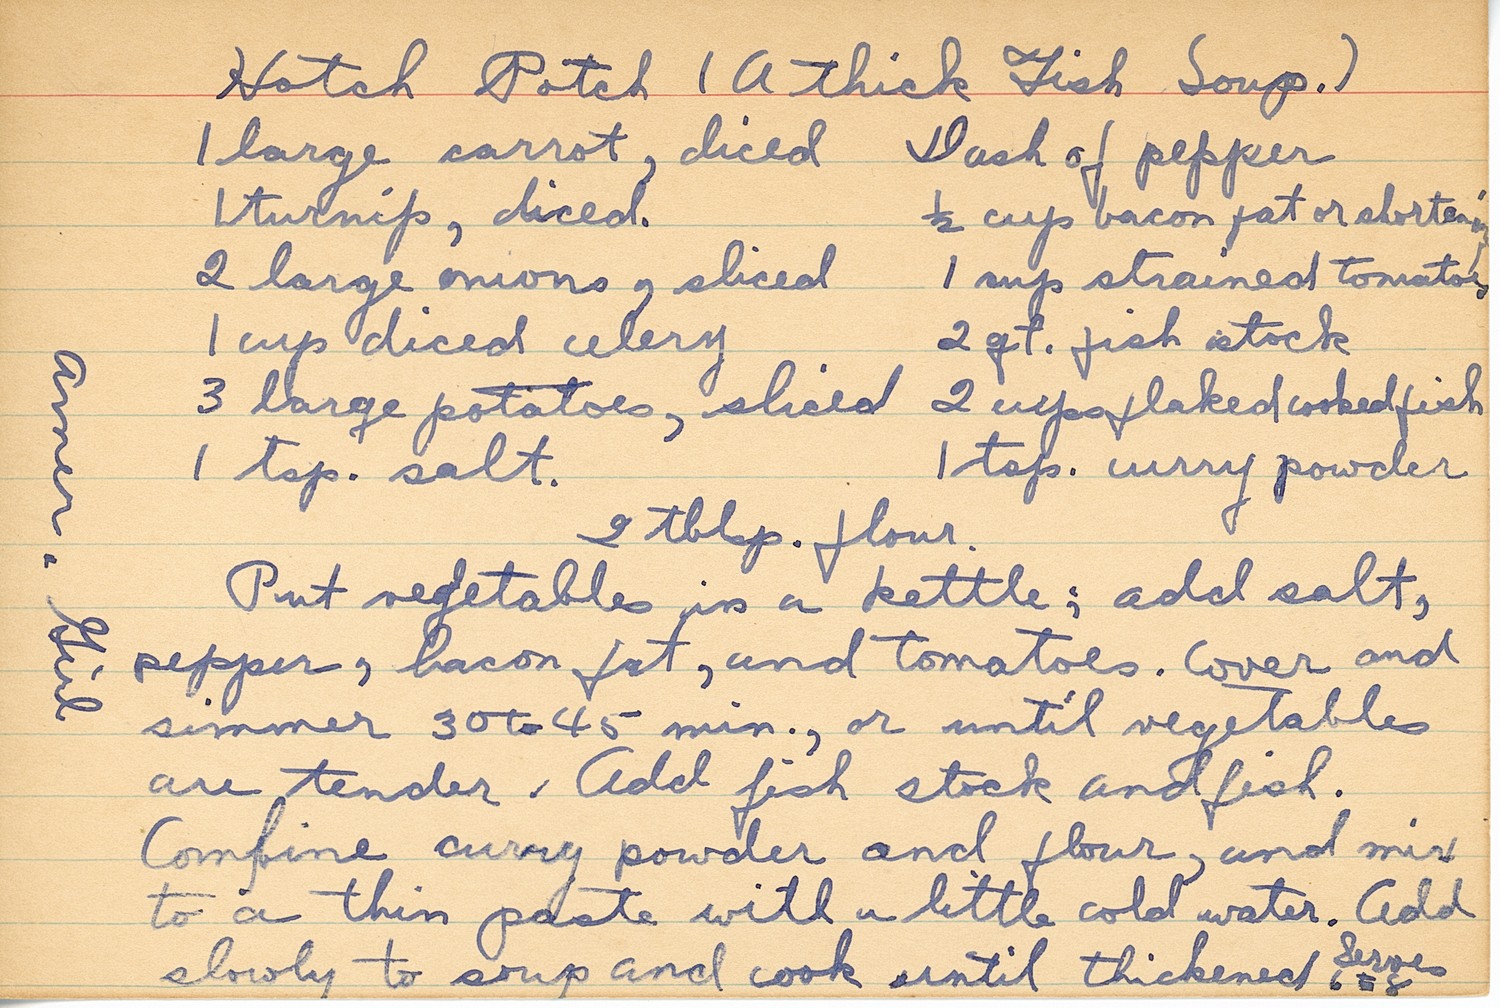 Hotch Potch (A thick Fish Soup.)
1 large carrot, diced
1 turnip, diced.
2 large onions, sliced
1 cup diced celery
3 large potatoes, sliced
1 tsp. salt.
Dash of pepper
1/2 cup bacon fat or shortening
1 cup strained tomatoes
2 qt. fish stock
2 cups flaked cooked fish
1 tsp. curry powder
2 tblsp. flour.
Put vegetables in a kettle; add salt,
pepper, bacon fat, and tomatoes. Cover and
simmer 30 to 45 min., or until vegetables
are tender. Add fish stock and fish.
Combine curry powder and flour, and mix
to a thin paste with a little cold water. Add
slowly to soup and cook until thickened.
Serves
6 - 8
Amer. Girl